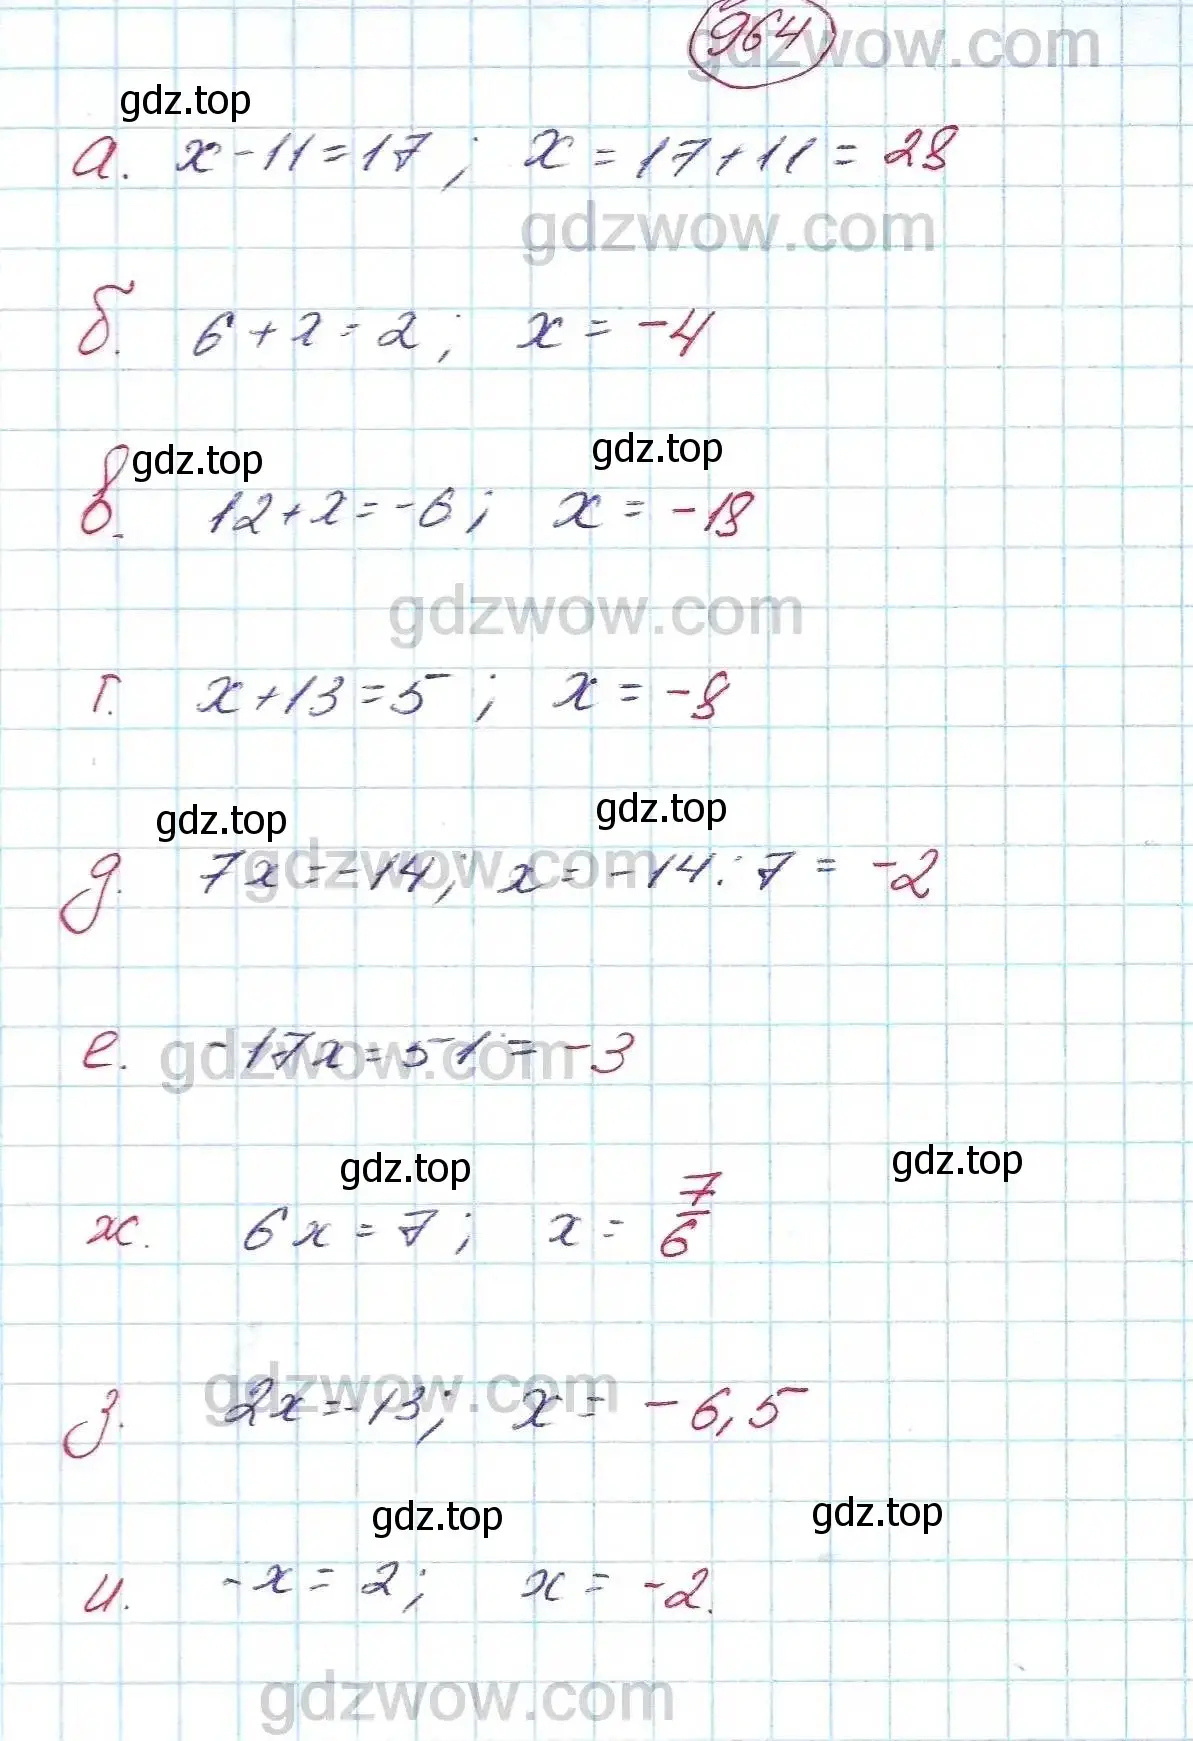 964
gdzwow.com
gdz.top
а. x - 11 = 17 ; x = 17 + 11 = 28
gdzwow.com
б. 6 + x = 2 ; x = -4
gdz.top gdz.top
в. 12 + x = -6 ; x = -18
gdzwow.com
г. x + 13 = 5 ; x = -8
gdz.top gdz.top
gdzwow.com
д. 7x = -14 ; x = -14 : 7 = -2
gdzwow.com
е. -17x = 51 = -3
gdz.top gdz.top
ж. 6x = 7 ; x = 7/6
gdzwow.com
з. 2x = -13 ; x = -6,5
gdz.top gdz.top
и. -x = 2 ; x = -2.
gdzwow.com